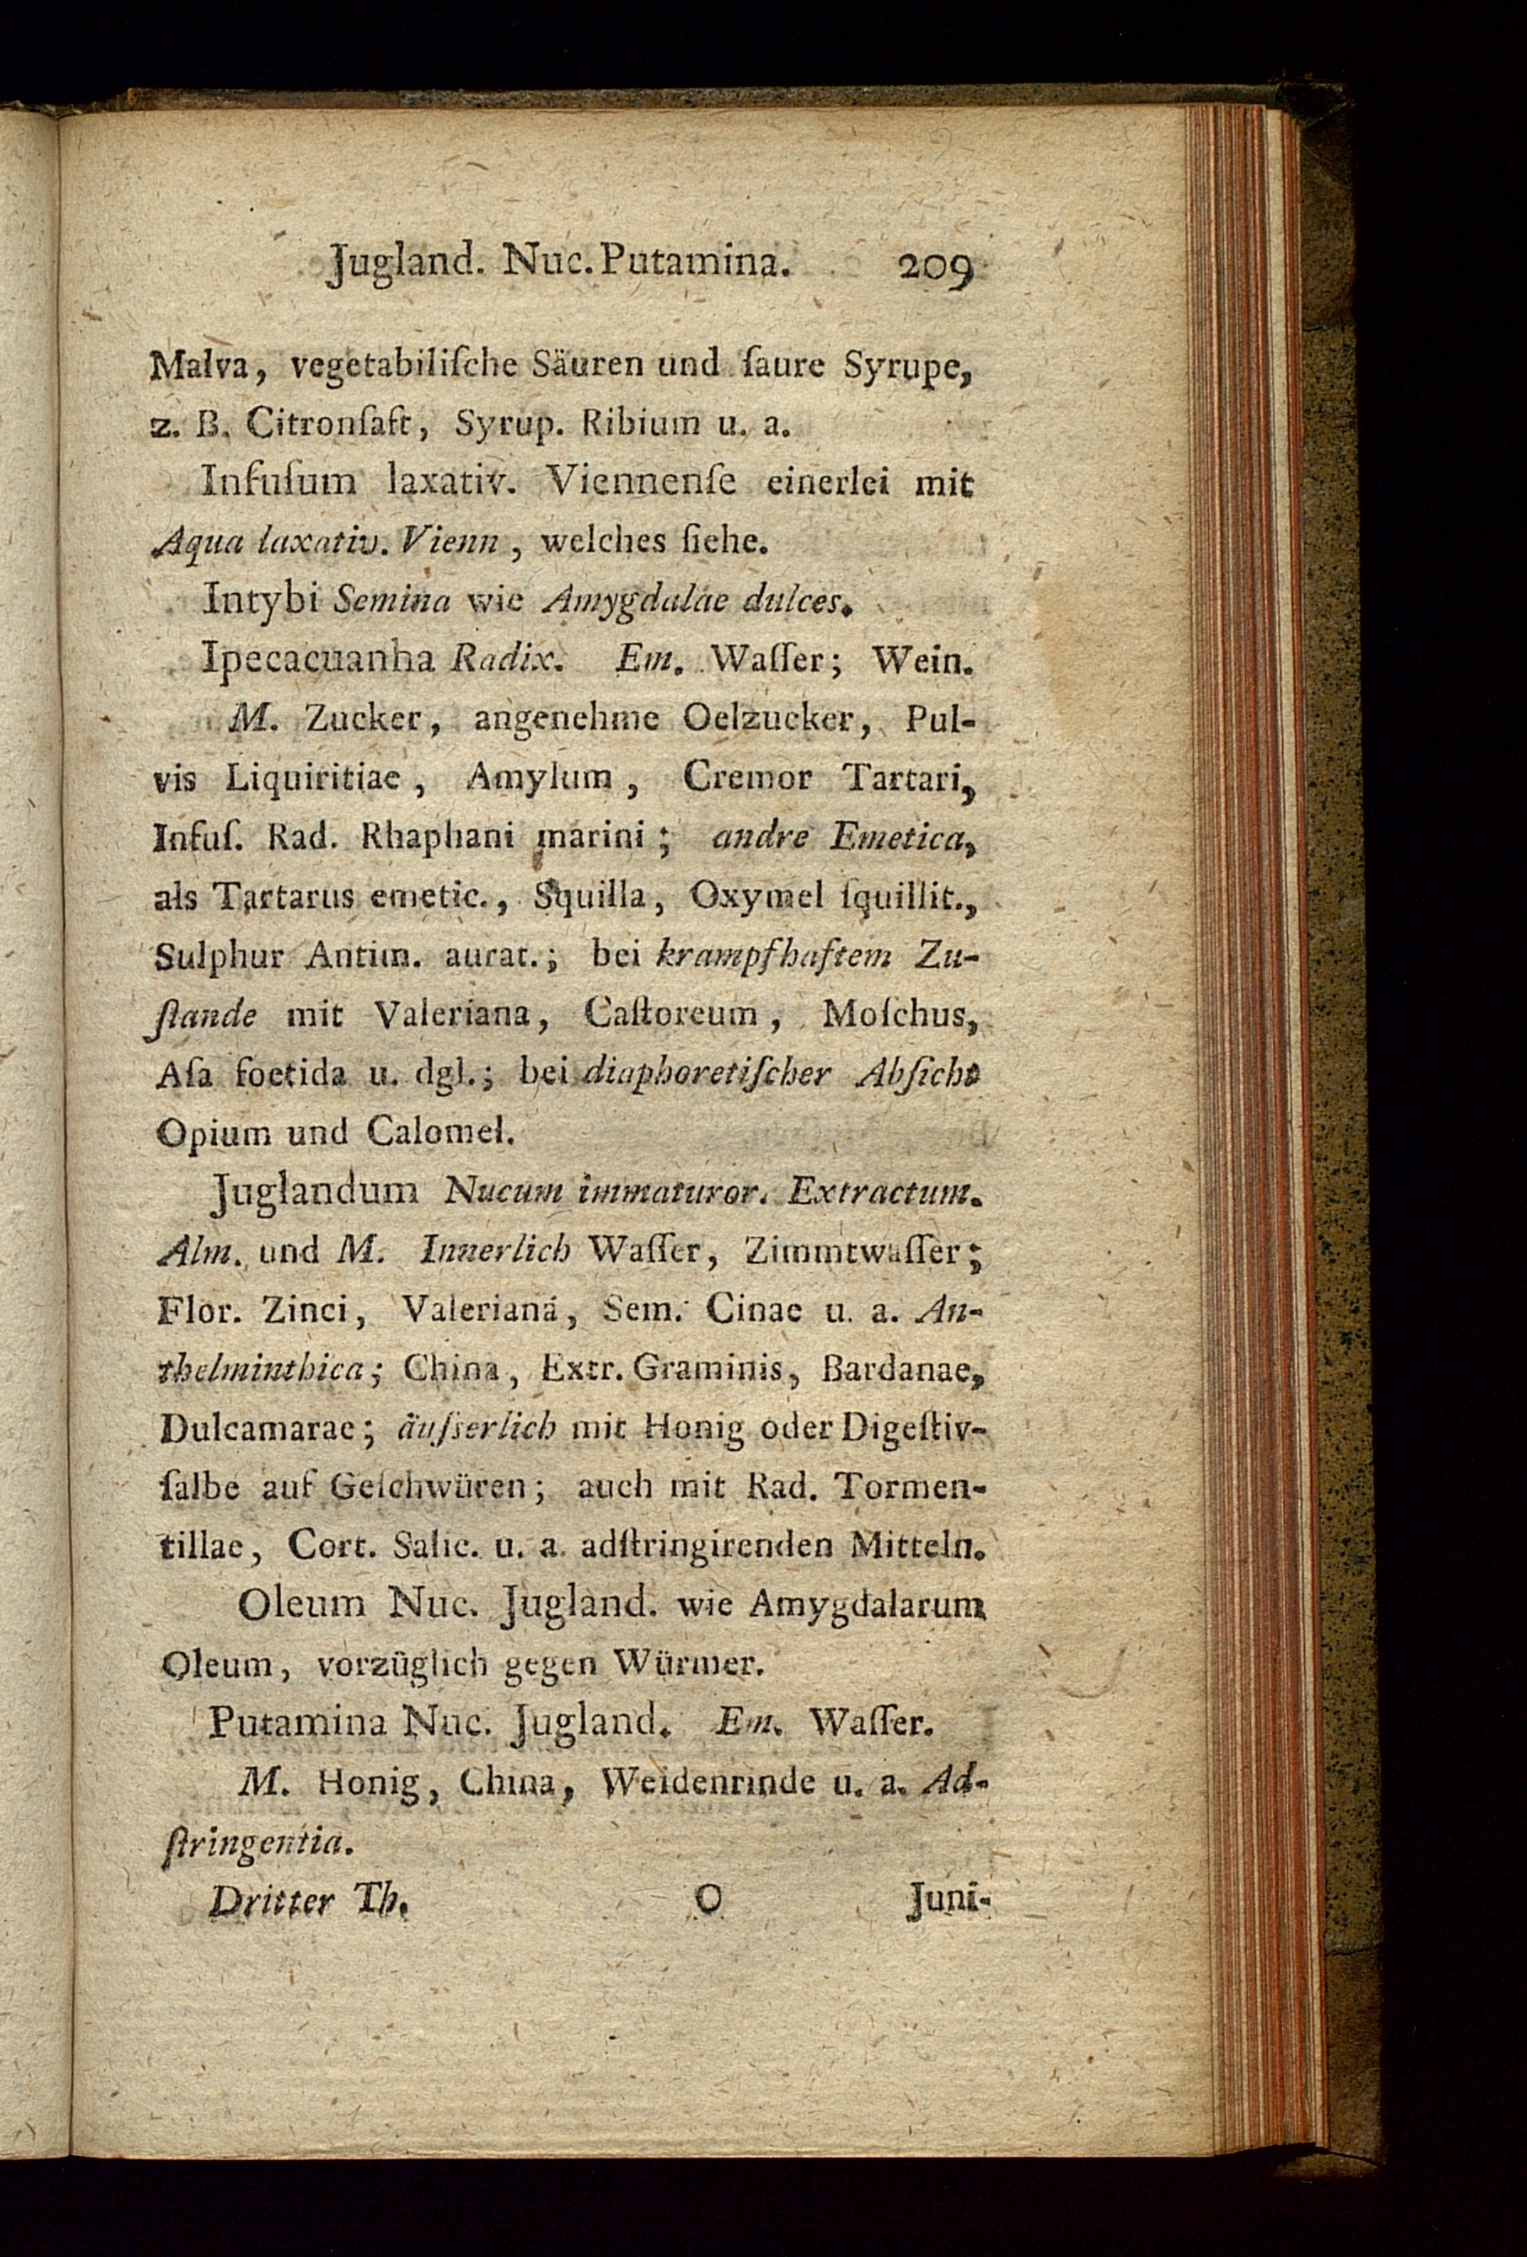 Jugland. Nuc. Putamina. 209
Malva, vegetabiliſche Säuren und ſaure Syrupe,
z. B. Citronſaft, Syrup. Ribium u. a.
Infuſum laxativ. Viennenſe einerlei mit
Aqua laxativ. Vienn, welches ſiehe.
Intybi Semina wie Amygdalae dulces.
Ipecacuanha Radix. Em. Waſſer; Wein.
M. Zucker, angenehme Oelzucker, Pul-
vis Liquiritiae, Amylum, Cremor Tartari,
Infuſ. Rad. Rhaphani marini; andre Emetica,
als Tartarus emetic., Squilla, Oxymel ſquillit.,
Sulphur Antim. aurat.; bei krampfhaftem Zu-
ſtande mit Valeriana, Caſtoreum, Moſchus,
Aſa foetida u. dgl.; bei diaphoretiſcher Abſicht
Opium und Calomel.
Juglandum Nucum immaturor. Extractum.
Alm. und M. Innerlich Waſſer, Zimmtwaſſer;
Flor. Zinci, Valeriana, Sem. Cinae u. a. An-
thelminthica; China, Extr. Graminis, Bardanae,
Dulcamarae; äuſserlich mit Honig oder Digeſtiv-
ſalbe auf Geſchwüren; auch mit Rad. Tormen-
tillae, Cort. Salic. u. a. adſtringirenden Mitteln.
Oleum Nuc. Jugland. wie Amygdalarum
Oleum, vorzüglich gegen Würmer.
Putamina Nuc. Jugland. Em. Waſſer.
M. Honig, China, Weidenrinde u. a. Ad-
ſtringentia.
Dritter Th. O Juni-